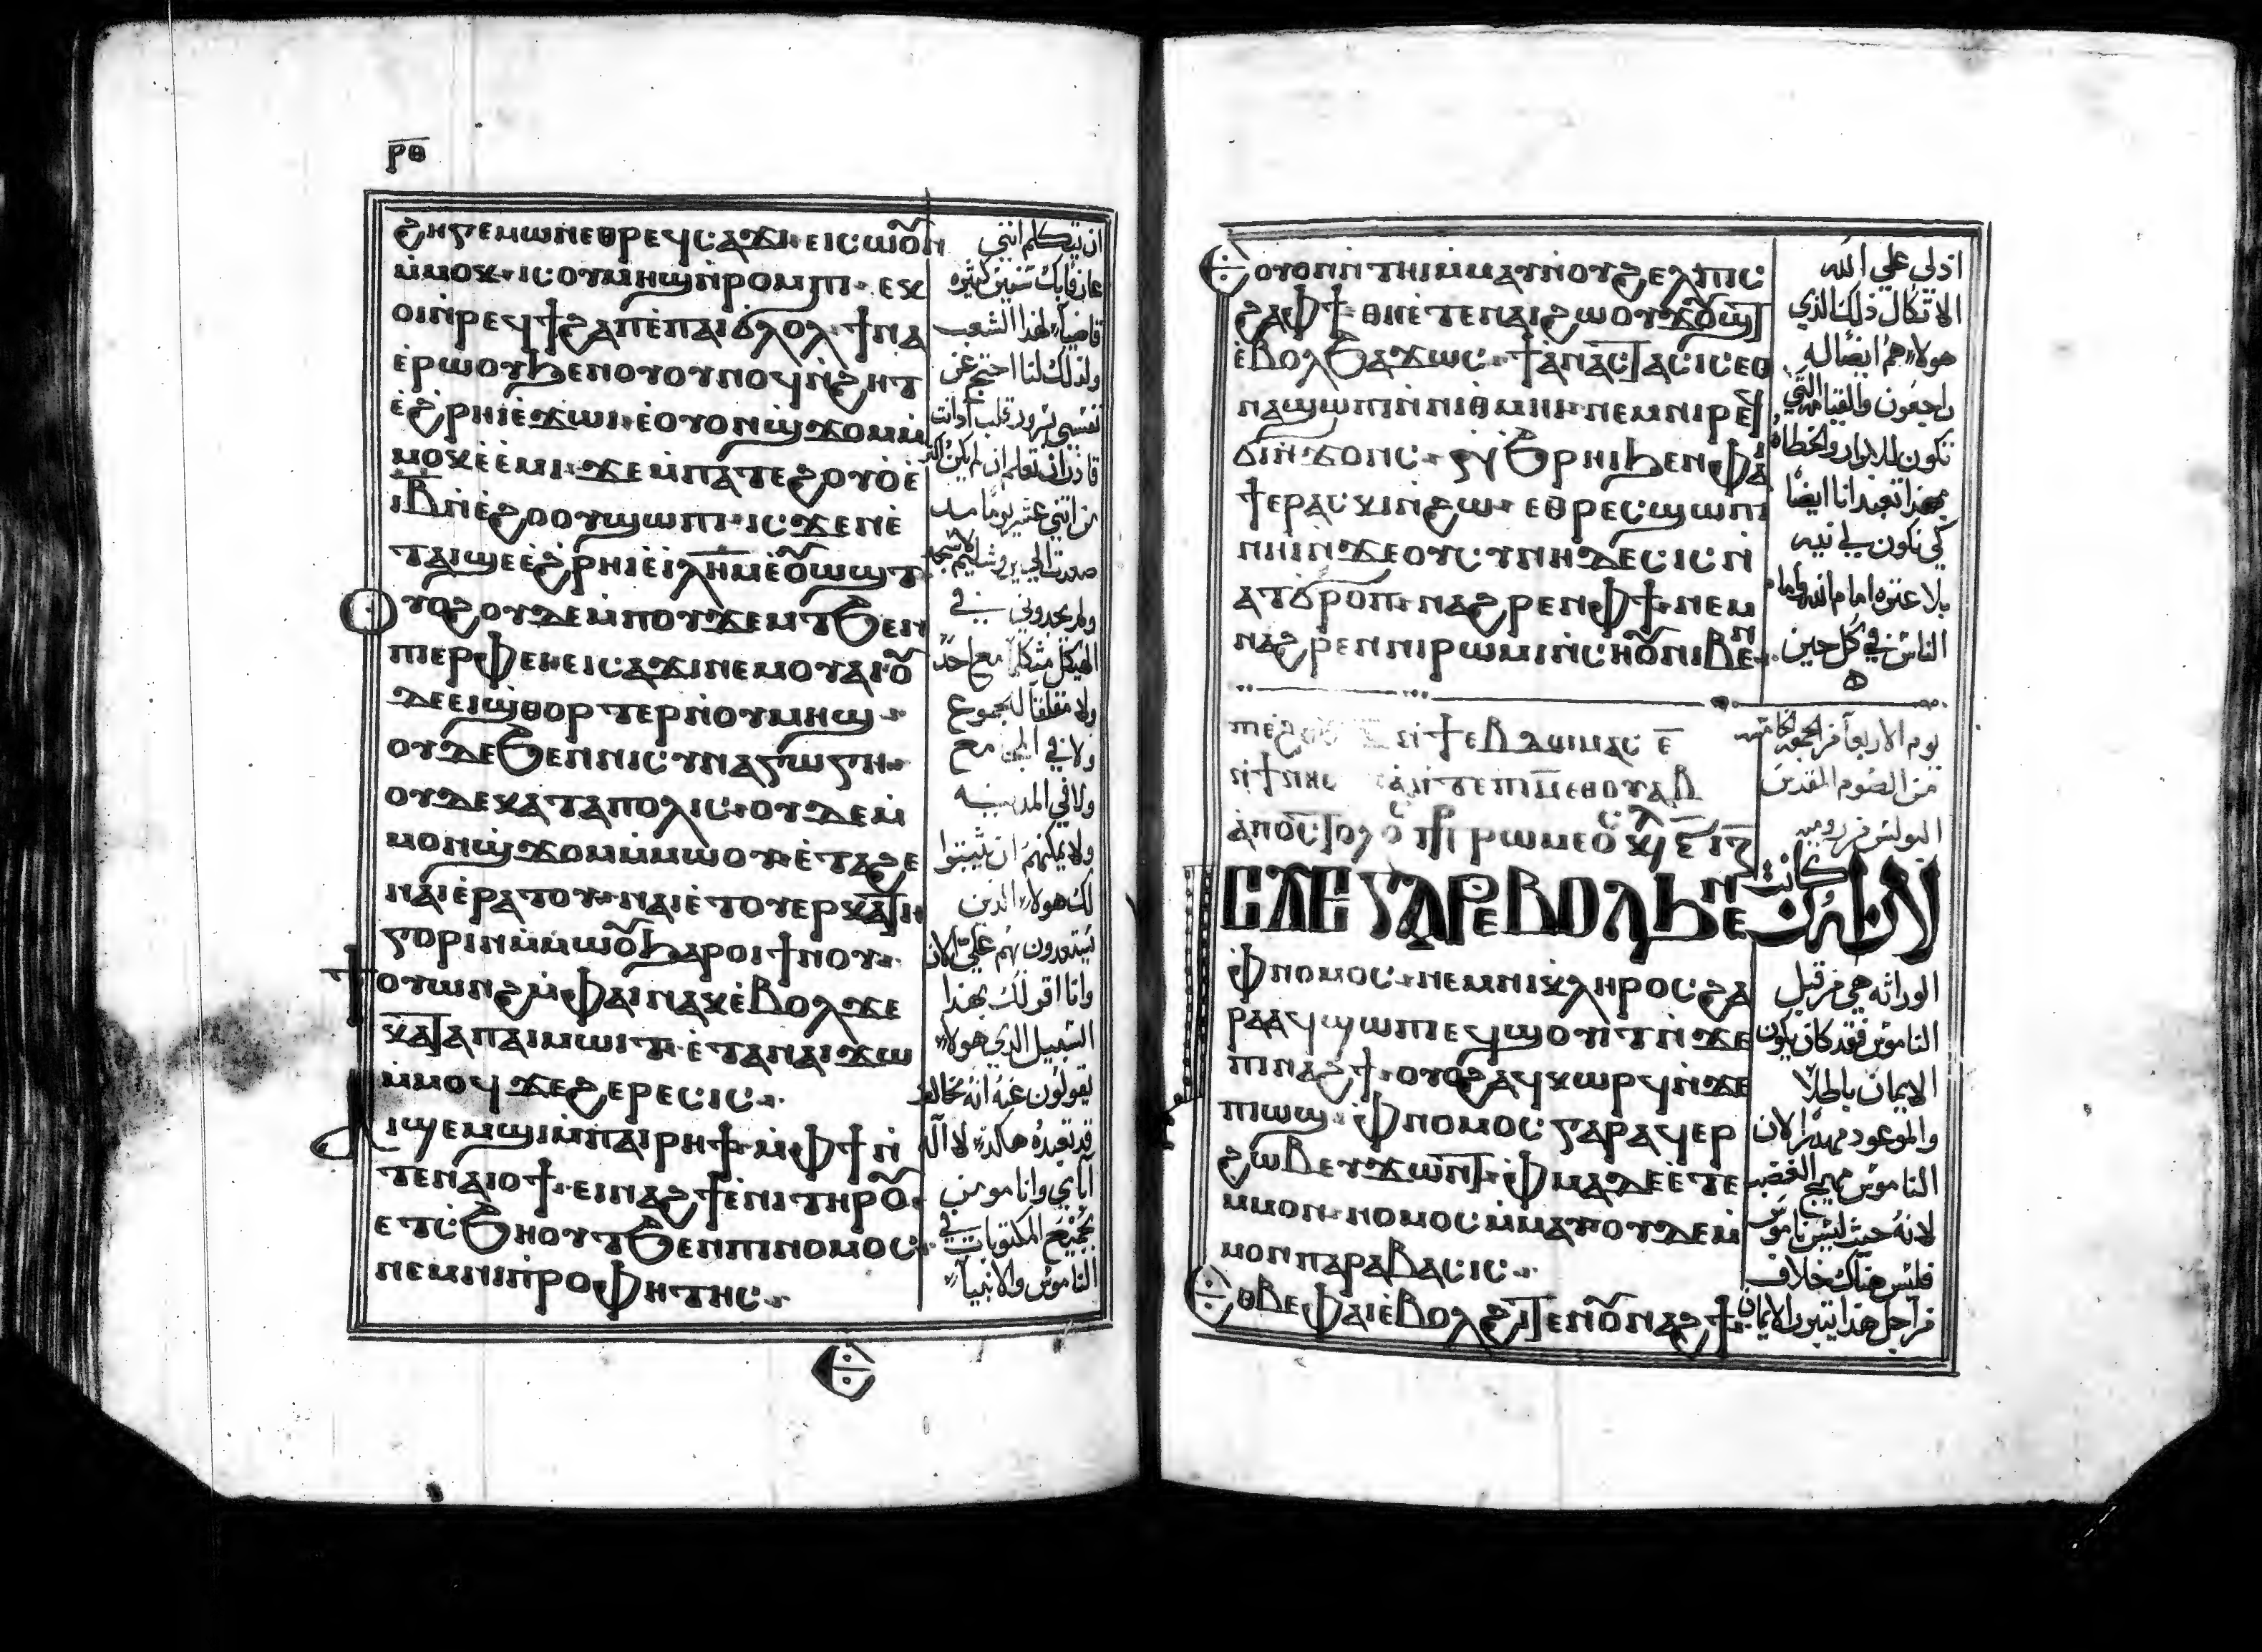 ⲣ̅ⲑ̅
ϩⲏⲅⲉⲙⲱⲛⲉⲑⲣⲉϥⲥⲁϫⲓ· ⲉⲓⲥⲱⲟⲩⲛ
ⲙ̇ⲙⲟⲕ· ⲓⲥⲟⲩⲙⲏϣⲛ̇ⲣⲟⲙⲡⲓ· ⲉⲕ
ⲟⲓⲛ̇ⲣⲉϥϯϩⲁⲡⲉ̇ⲡⲁⲓϣⲗⲟⲗ· ϯⲛⲁ
ⲉ̇ⲣⲱⲟⲩϧⲉⲛⲟⲩⲟⲩⲛⲟϥⲛ̇ϩⲏⲧ
ⲉ̇ϩ̇ⲣⲏⲓⲉ̇ϫⲱⲓ· ⲉ̇ⲟⲩⲟⲛϣ̇ϫⲟⲙⲙ̇
ⲙⲟⲕⲉ̇ⲉ̇ⲙⲓ· ϫⲉⲙ̇ⲡⲁⲧⲉϩⲟⲩⲟ̇ⲉ̇
ⲓ̅ⲃ̅ⲛ̇ⲉ̇ϩⲟⲟⲩϣⲱⲡⲓ· ⲓⲥϫⲉⲛⲉ̇
ⲧⲁⲓϣⲉⲉ̇ϩ̇ⲣⲏⲓⲉ̇ⲓ̇ⲗ̅ⲏ̅ⲙ̅ⲉ̇ⲟⲩⲱϣⲧ·
ⲟⲩⲟϩⲟⲩⲇⲉⲙ̇ⲡⲟⲩϫⲉⲙⲧϧⲉⲛ
ⲡⲓⲉⲣⲫⲉⲓ· ⲉⲓⲥⲁϫⲓⲛⲉⲙⲟⲩⲁⲓ· ⲟⲩ
ⲇⲉⲉⲓϣ̇ⲑⲟⲣⲧⲉⲣⲛ̇ⲟⲩⲙⲏϣ·
ⲟⲩⲇⲉϧⲉⲛⲛⲓⲥⲩⲛⲁⲅⲱⲅⲏ·
ⲟⲩⲇⲉⲕⲁⲧⲁⲡⲟⲗⲓⲥ· ⲟⲩⲇⲉⲙ̇
ⲙⲟⲛϣ̇ϫⲟⲙⲙ̇ⲙⲱⲟⲩ· ⲉ̇ⲧⲁϩⲉ
ⲛⲁⲓⲉ̇ⲣⲁⲧⲟⲩ· ⲛⲁⲓⲉ̇ⲧⲟⲩⲉⲣⲕⲁⲧⲏ
ⲅⲟⲣⲓⲛⲙ̇ⲙⲱⲟⲩϧⲁⲣⲟⲓϯⲛⲟⲩ·
ϯⲟⲩⲱⲛϩⲙ̇ⲫⲁⲓⲛⲁⲕⲉ̇ⲃⲟⲗϫⲉ
ⲕⲁⲧⲁⲡⲁⲓⲙⲱⲓⲧ· ⲉ̇ⲧⲁⲛⲁⲓϫⲱ
ⲙ̇ⲙⲟϥϫⲉϩⲉⲣⲉⲥⲓⲥ·
ⲁⲓϣⲉⲙϣⲓⲙ̇ⲡⲁⲓⲣⲏϯ· ⲙ̇ⲫϯⲛ̇
ⲧⲉⲛⲁⲓⲟϯ· ⲉⲓⲛⲁϩϯⲉ̇ⲛⲓⲧⲏⲣⲟⲩ·
ⲉⲧⲥ̇ϧⲏⲟⲩⲧϧⲉⲛⲡⲓⲛⲟⲙⲟⲥ·
ⲛⲉⲙⲛⲓⲡ̇ⲣⲟⲫⲏⲧⲏⲥ·
ان يتكلم انني
عارفا بك سنين كثيره
قاضيا لهذا الشعب
ولذلك لنا احتج عن
نفسي بسرور قلب اذ انت
قادران تعلم ان لم يكن اكثر
من اثني عشر يوما منذ
صعدت الى يروشاليم لاسجد
ولم يجدوني في
الهيكل متكلما مع احد
ولا مقلقا لجموع
ولا في المجمع
ولا في المدينه
ولا يمكنهم ان يثبتوا
لك هولاء الذين
يستعدون بهم علي الان
وانا اقر لك بهذا
السبيل الذي هولاء
يقولون عنه انه مخالف
قد تعبدة هكذا لالاه
آباي وانا مومن
بجميع المكتوبات في
الناموس والانبياء
ⲉⲟⲩⲟⲛⲛ̇ⲧⲏⲓⲙ̇ⲙⲁⲩⲛ̇ⲟⲩϩⲉⲗⲡⲓⲥ
ϩⲁⲫϯ· ⲑⲏⲉ̇ⲧⲉⲛⲁⲓϩⲱⲟⲩϫⲟⲩϣⲧ
ⲉ̇ⲃⲟⲗϧⲁϫⲱⲥ· ϯⲁ̇ⲛⲁⲥⲧⲁⲥⲓⲥⲉⲑ
ⲛⲁϣⲱⲡⲓⲛ̇ⲛⲓⲑⲙⲏⲓ· ⲛⲉⲙⲛⲓⲣⲉϥ
ϭⲓⲛ̇ϫⲟⲛⲥ· ⲛ̇ϩⲣⲏⲓϧⲉⲛⲫⲁⲓ
ϯⲉⲣⲁⲥⲕⲓⲛϩⲱ· ⲉⲑⲣⲉⲥϣⲱⲡⲓ
ⲛⲏⲓⲛ̇ϫⲉⲟⲩⲥⲩⲛⲏⲇⲉⲥⲓⲥⲛ̇
ⲁⲧϭⲣⲟⲡ· ⲛⲁϩⲣⲉⲛⲫϯ· ⲛⲉⲙ
ⲛⲁϩⲣⲉⲛⲛⲓⲣⲱⲙⲓⲛ̇ⲥⲏⲟⲩⲛⲓⲃⲉⲛ·
اذ لي علي الله
الاتكال ذلك الذي
هولاء هم ايضا له
راجعون والقيامه التي
تكون للابرار والخطاه
بهذا تعبد انا ايضا
كي تكون لي نيه
بلا عثره امام الله وامام
الناس في كل حين
ⲛ̇ϯⲉⲃⲇⲟⲙⲁⲥ ⲉ̅
ⲁ̇ⲡⲟⲥⲧⲟⲗⲟⲥ ⲣⲱⲙⲉⲟⲥ
يوم الاربعا من الجمعه الخامسه
من الصوم المقدس
البولس من روميه
ⲉⲧⲁⲉⲅⲁⲣⲉⲃⲟⲗϧⲉⲛ
لان ان كانت
ⲫ̇ⲛⲟⲙⲟⲥ· ⲛⲉⲙⲛⲓⲕ̇ⲗⲏⲣⲟⲥ· ϩⲁ
ⲣⲁⲁϥϣⲱⲡⲉϥϣⲟⲩⲓⲧⲛ̇ϫⲉ
ⲡⲓⲛⲁϩϯ· ⲟⲩⲟϩⲁϥⲕⲱⲣϥⲛ̇ϫⲉ
ⲡⲓⲱϣ· ⲫ̇ⲛⲟⲙⲟⲥⲅⲁⲣⲁϥⲉⲣ
ϩⲱⲃⲉⲩϫⲱⲛⲧ· ⲫ̇ⲙⲁⲇⲉⲉ̇ⲧⲉ
ⲙⲙⲟⲛ· ⲛⲟⲙⲟⲥⲙ̇ⲙⲁⲩⲟⲩⲇⲉⲙ̇
ⲙⲟⲛⲡⲁⲣⲁⲃⲁⲥⲓⲥ·
ⲉⲑⲃⲉⲫⲁⲓⲉ̇ⲃⲟⲗϩⲓⲧⲉⲛⲟⲩⲛⲁϩϯ·
الوراثه هي من قبل
الناموس فقد كان يكون
الايمان باطلا
والموعود مهدرا لان
الناموس يهيج الغضب
لانه حيث ليس ناموس
فليس هناك خلاف
من اجل هذا يتبرر الايمان